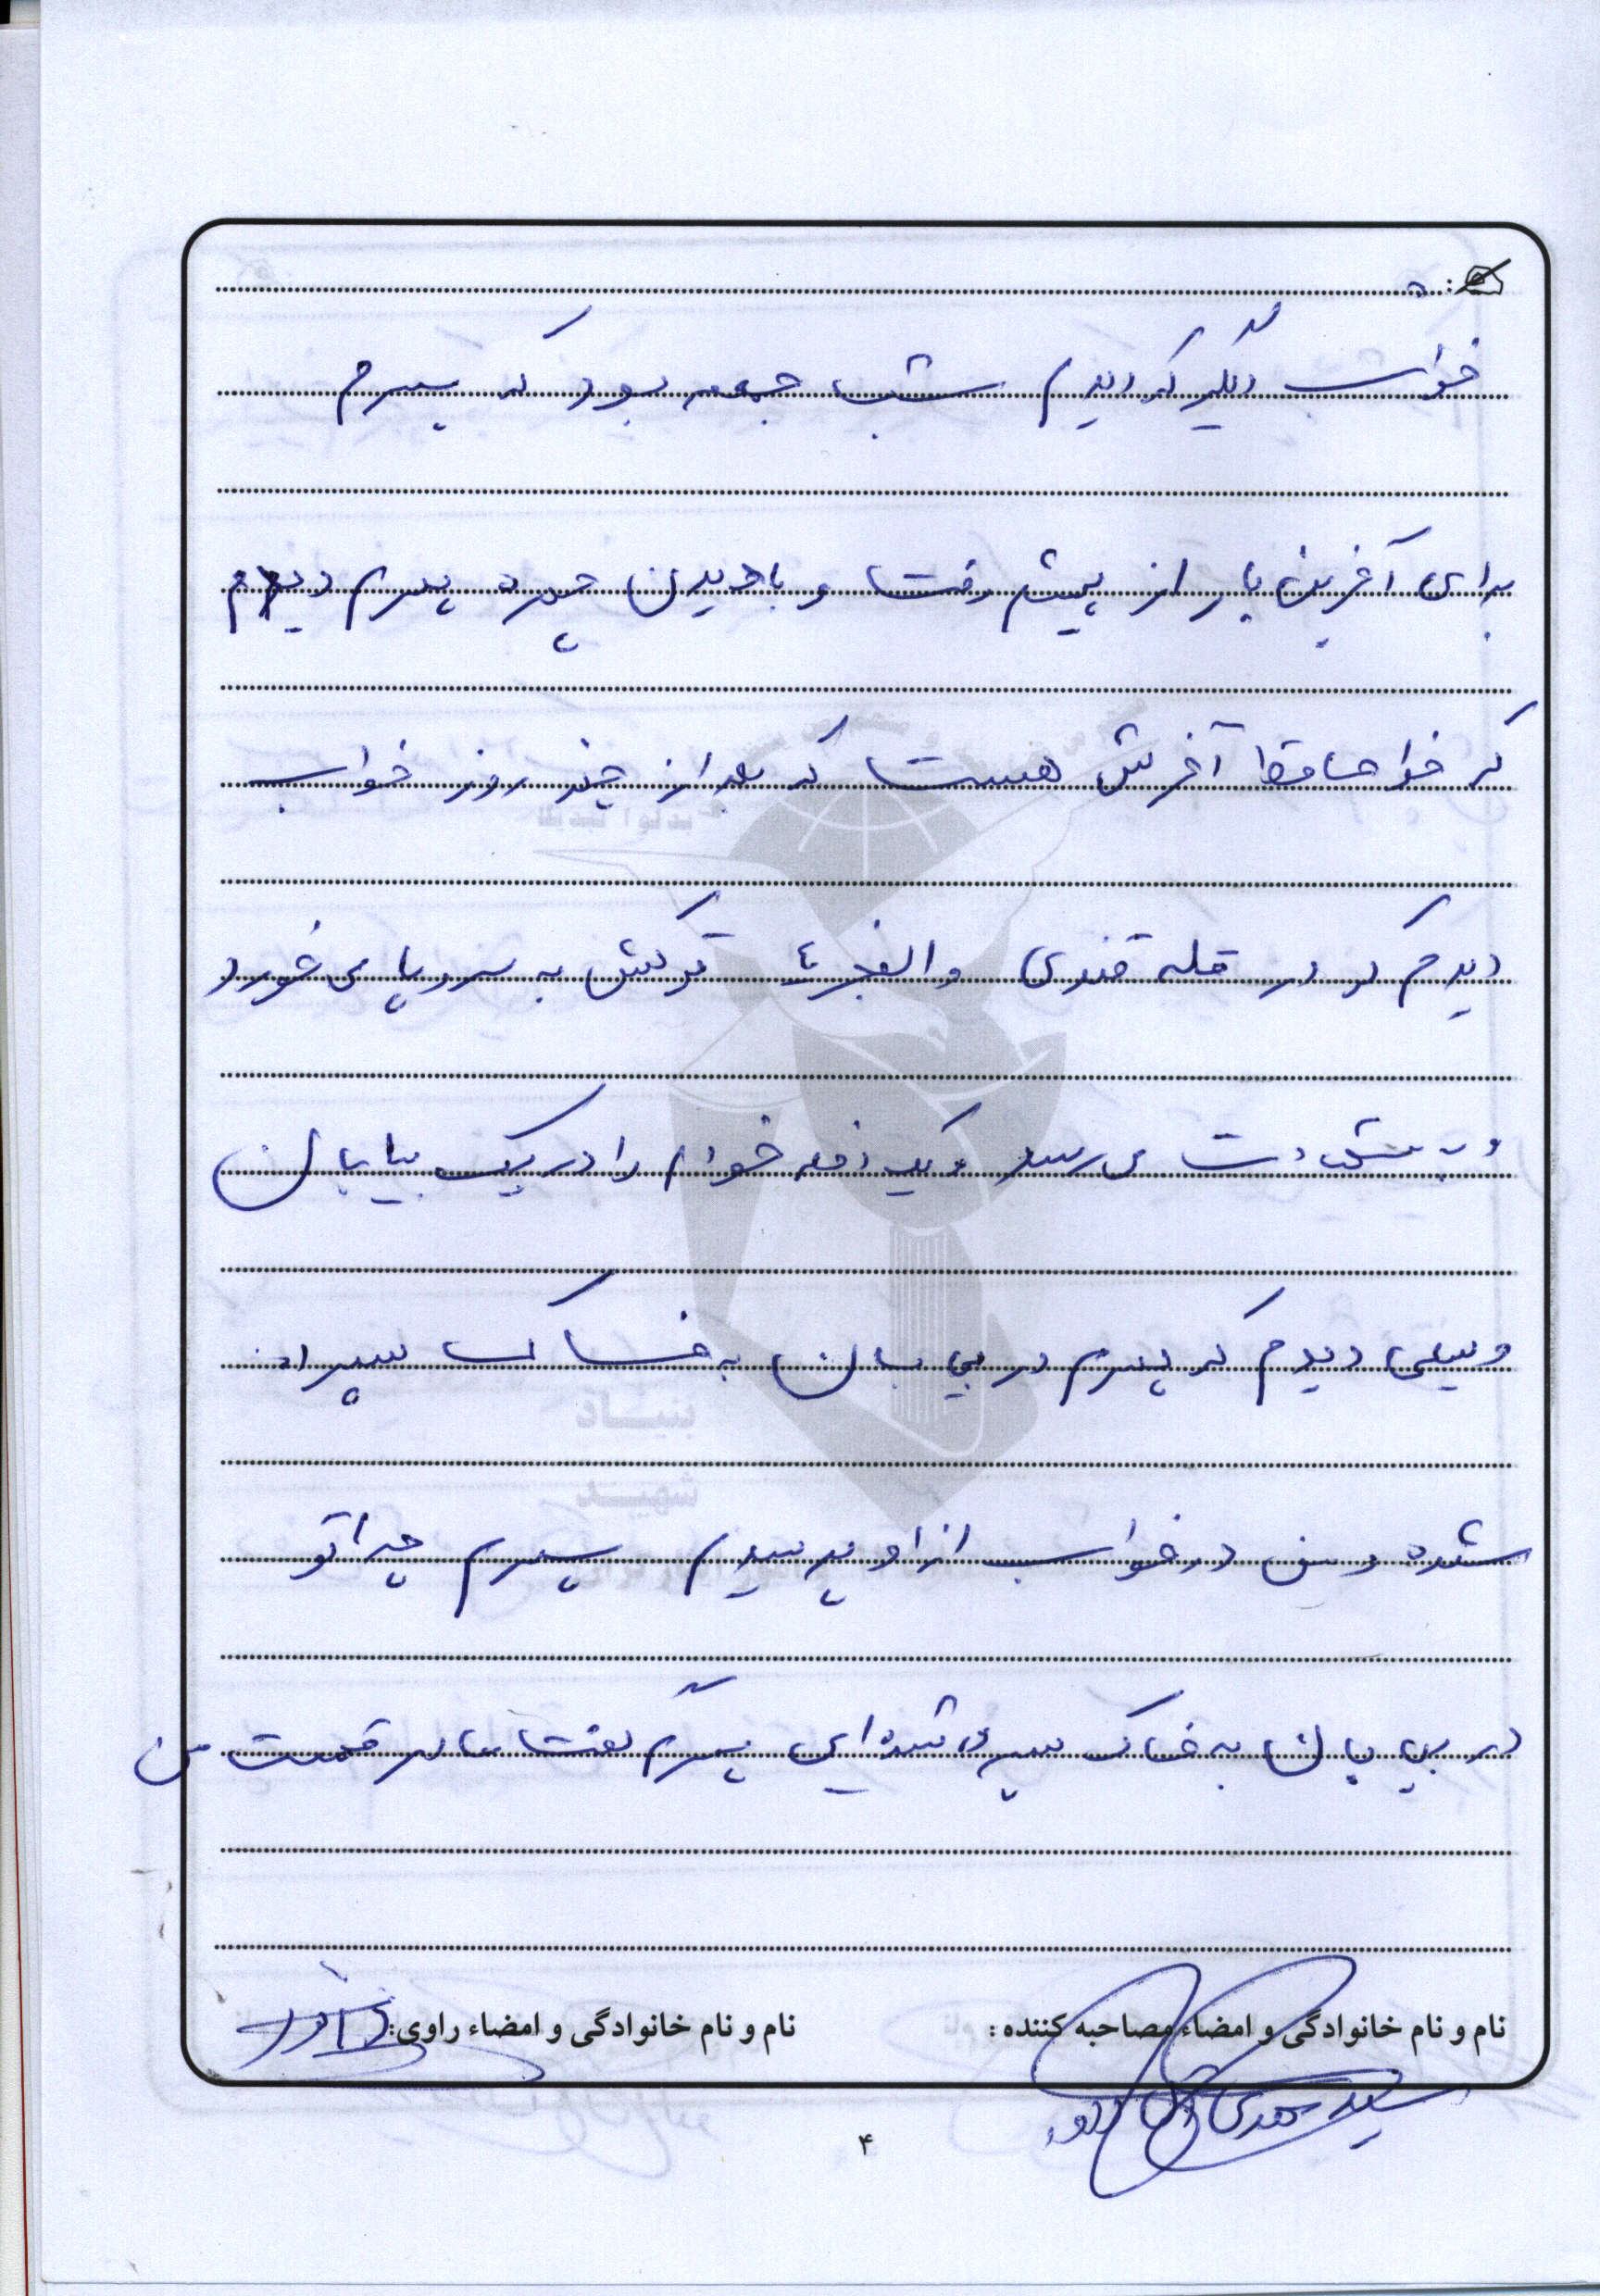 خواب دیگر که دیدم شب جمعه بود که پسرم
برای آخرین بار از پیشم رفت و با دیدن چهره پسرم دیدم
که خداحافظ آخرش هست که بعد از چند روز خواب
دیدم که در قله قندی والفجر ٤ ترکش به سر و پای خورد
و به شهادت می رسد و یک دفعه خودم را در یک بیابان
وسیعی دیدم که پسرم در بی بان به خاک سپرده
شده و من در خواب از او پرسیدم پسرم چرا تو
در بی بان به خاک سپری شده ای پسرم گفت مادر قسمت من
نام و نام خانوادگی و امضاء مصاحبه کننده :
نام و نام خانوادگی و امضاء راوی:
سید مهدی
۴